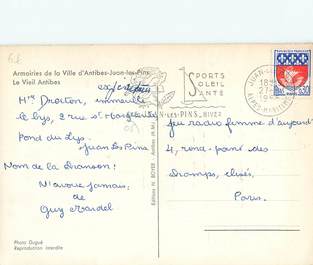 Armoiries de la Ville d'Antibes-Juan-les-Pins
Le Vieil Antibes
expéditeur
Mme Droiton, immeuble
le Lys, 2 rue Ste Marguerite
Pond du Lys
Juan les Pins
Nom de la Chanson:
N'avoue jamais
de
Guy Mardel
Photo Gugué
Reproduction interdite
SPORTS
SOLEIL
SANTÉ
JUAN-LES-PINS
ALPES-MARITIMES
0,30
Jeu radio femme d'aujourd'hui
4, rond-point des
champs, elisés,
Paris.